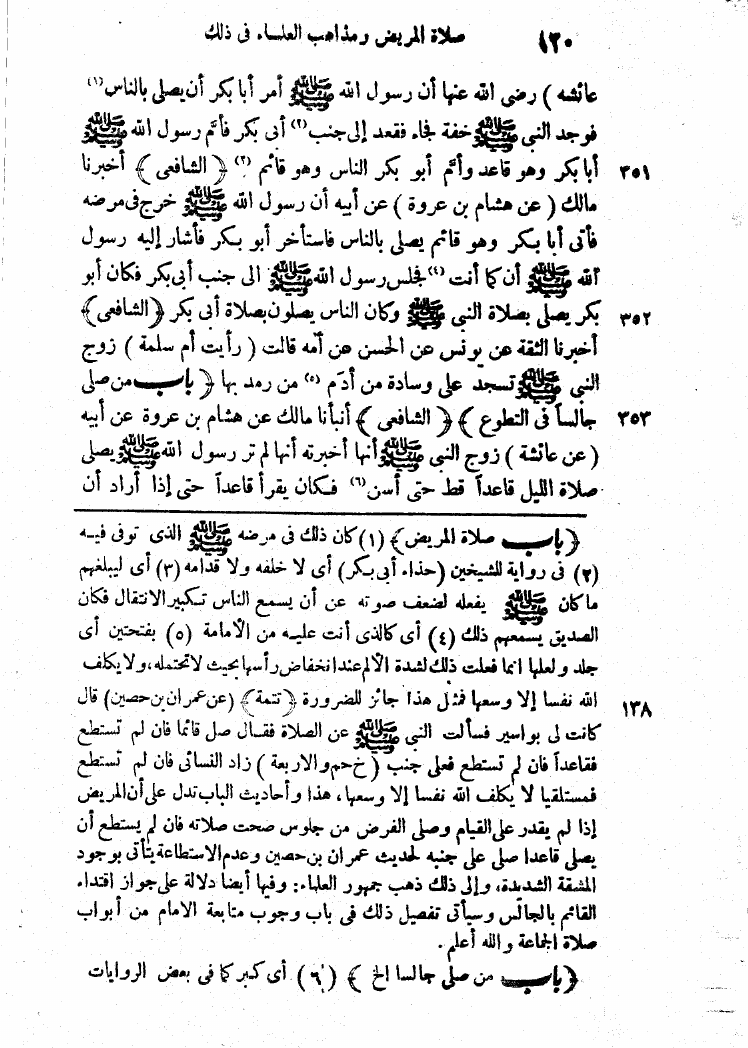 ١٢٠ صلاة المريض ومذاهب العلماء فى ذلك
عائشه ) رضى الله عنها أن رسول الله ﷺ أمر أبا بكر أن يصلى بالناس (١)
فوجد النبى ﷺ خفة فجاء فقعد إلى جنب (٢) أبى بكر فأم رسول الله ﷺ
٣٥١ أبا بكر وهو قاعد وأم أبو بكر الناس وهو قائم (٣) ﴿ الشافعى ﴾ أخبرنا
مالك ( عن هشام بن عروة ) عن أبيه أن رسول الله ﷺ خرج فى مرضه
فأتى أبا بكر وهو قائم يصلى بالناس فاستأخر أبو بكر فأشار إليه رسول
الله ﷺ أن كما أنت (٤) فجلس رسول الله ﷺ الى جنب أبى بكر فكان أبو
٣٥٢ بكر يصلى بصلاة النبى ﷺ وكان الناس يصلون بصلاة أبى بكر ﴿ الشافعى ﴾
أخبرنا الثقة عن يونس عن الحسن عن أمه قالت ( رأيت أم سلمة ) زوج
النبى ﷺ تسجد على وسادة من أدم (٥) من رمد بها ﴿ باب من صلى
٣٥٣ جالساً فى التطوع ﴾ ﴿ الشافعى ﴾ أنبأنا مالك عن هشام بن عروة عن أبيه
( عن عائشة ) زوج النبى ﷺ أنها أخبرته أنها لم تر رسول الله ﷺ يصلى
صلاة الليل قاعداً قط حتى أسن (٦) فكان يقرأ قاعداً حتى إذا أراد أن
﴿ باب صلاة المريض ﴾ (١) كان ذلك فى مرضه ﷺ الذى توفى فيه
(٢) فى رواية للشيخين (حذاء أبى بكر) أى لا خلفه ولا قدامه (٣) أى ليبلغهم
ما كان ﷺ يفعله لضعف صوته عن أن يسمع الناس تكبير الانتقال فكان
الصديق يسمعهم ذلك (٤) أى كالذى أنت عليه من الأمامة (٥) بفتحتين أى
جلد ولعلها انما فعلت ذلك لشدة الألم عند انخفاض رأسها بحيث لا تحتمله، ولا يكلف
١٣٨ الله نفسا إلا وسعها فمثل هذا جائز للضرورة ﴿ تتمة ﴾ (عن عمران بن حصين) قال
كانت لى بواسير فسألت النبى ﷺ عن الصلاة فقال صل قائما فان لم تستطع
فقاعداً فان لم تستطع فعلى جنب ( خ حم والاربعة ) زاد النسائى فان لم تستطع
فمستلقيا لا يكلف الله نفسا إلا وسعها، هذا وأحاديث الباب تدل على أن المريض
إذا لم يقدر على القيام وصلى الفرض من جلوس صحت صلاته فان لم يستطع أن
يصلى قاعدا صلى على جنبه لحديث عمران بن حصين وعدم الاستطاعة يتأتى بوجود
المشقة الشديدة، وإلى ذلك ذهب جمهور العلماء: وفيها أيضا دلالة على جواز اقتداء
القائم بالجالس وسيأتى تفصيل ذلك فى باب وجوب متابعة الامام من أبواب
صلاة الجماعة والله أعلم .
﴿ باب من صلى جالسا الخ ﴾ (٦) أى كبر كما فى بعض الروايات